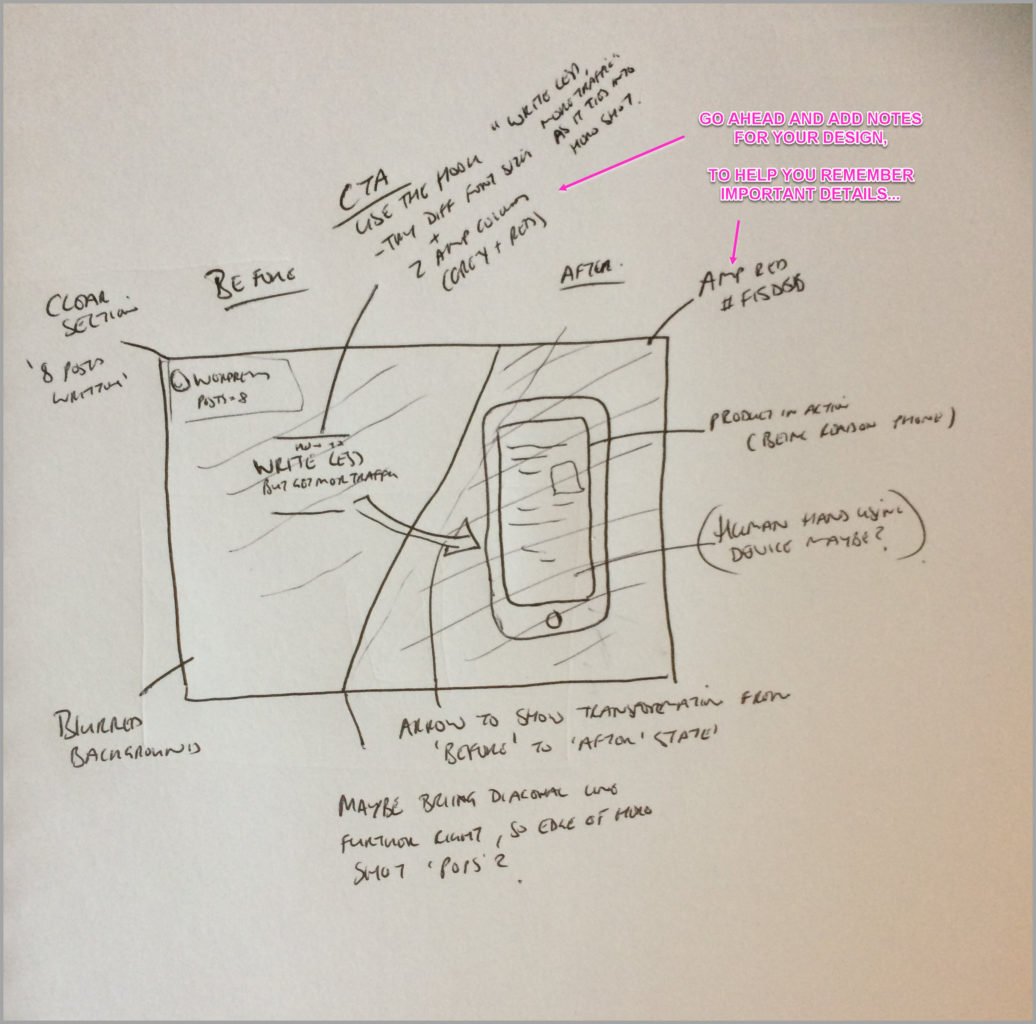 "WRITE LESS,
MORE TRAFFIC"
AS IT TIES INTO
HERO SHOT.
GO AHEAD AND ADD NOTES
FOR YOUR DESIGN,
TO HELP YOU REMEMBER
IMPORTANT DETAILS...
CTA
USE THE HOOK
- TRY DIFF FONT SIZES
+
2 AMP COLOURS
(GREY + RED)
BEFORE
AFTER.
AMP RED
CLEAR
SECTION
'8 POSTS
WRITTEN'
WORDPRESS
POSTS = 8
HOW TO
WRITE LESS
BUT GET MORE TRAFFIC
PRODUCT IN ACTION
(BEING READ ON PHONE)
(HUMAN HAND USING
DEVICE MAYBE?)
BLURRED
BACKGROUNDS
ARROW TO SHOW TRANSFORMATION FROM
'BEFORE' TO 'AFTER' STATES
MAYBE BRING DIAGONAL LINE
FURTHER RIGHT, SO EDGE OF HERO
SHOT 'POPS'?